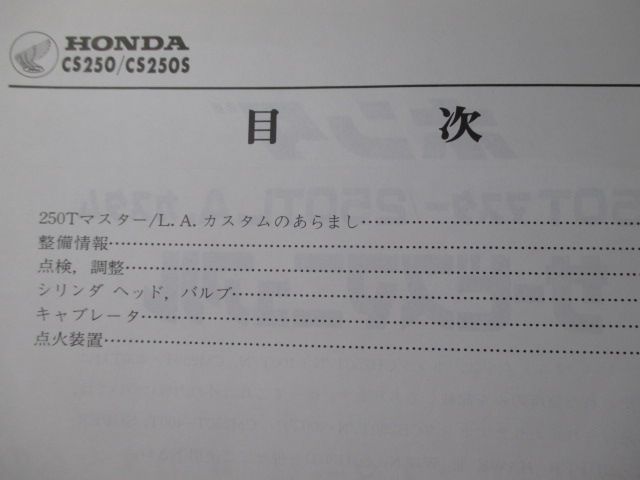 HONDA
CS250/CS250S
目 次
250Tマスター/L.A.カスタムのあらまし
整備情報
点検,調整
シリンダ ヘッド,バルブ
キャブレータ
点火装置